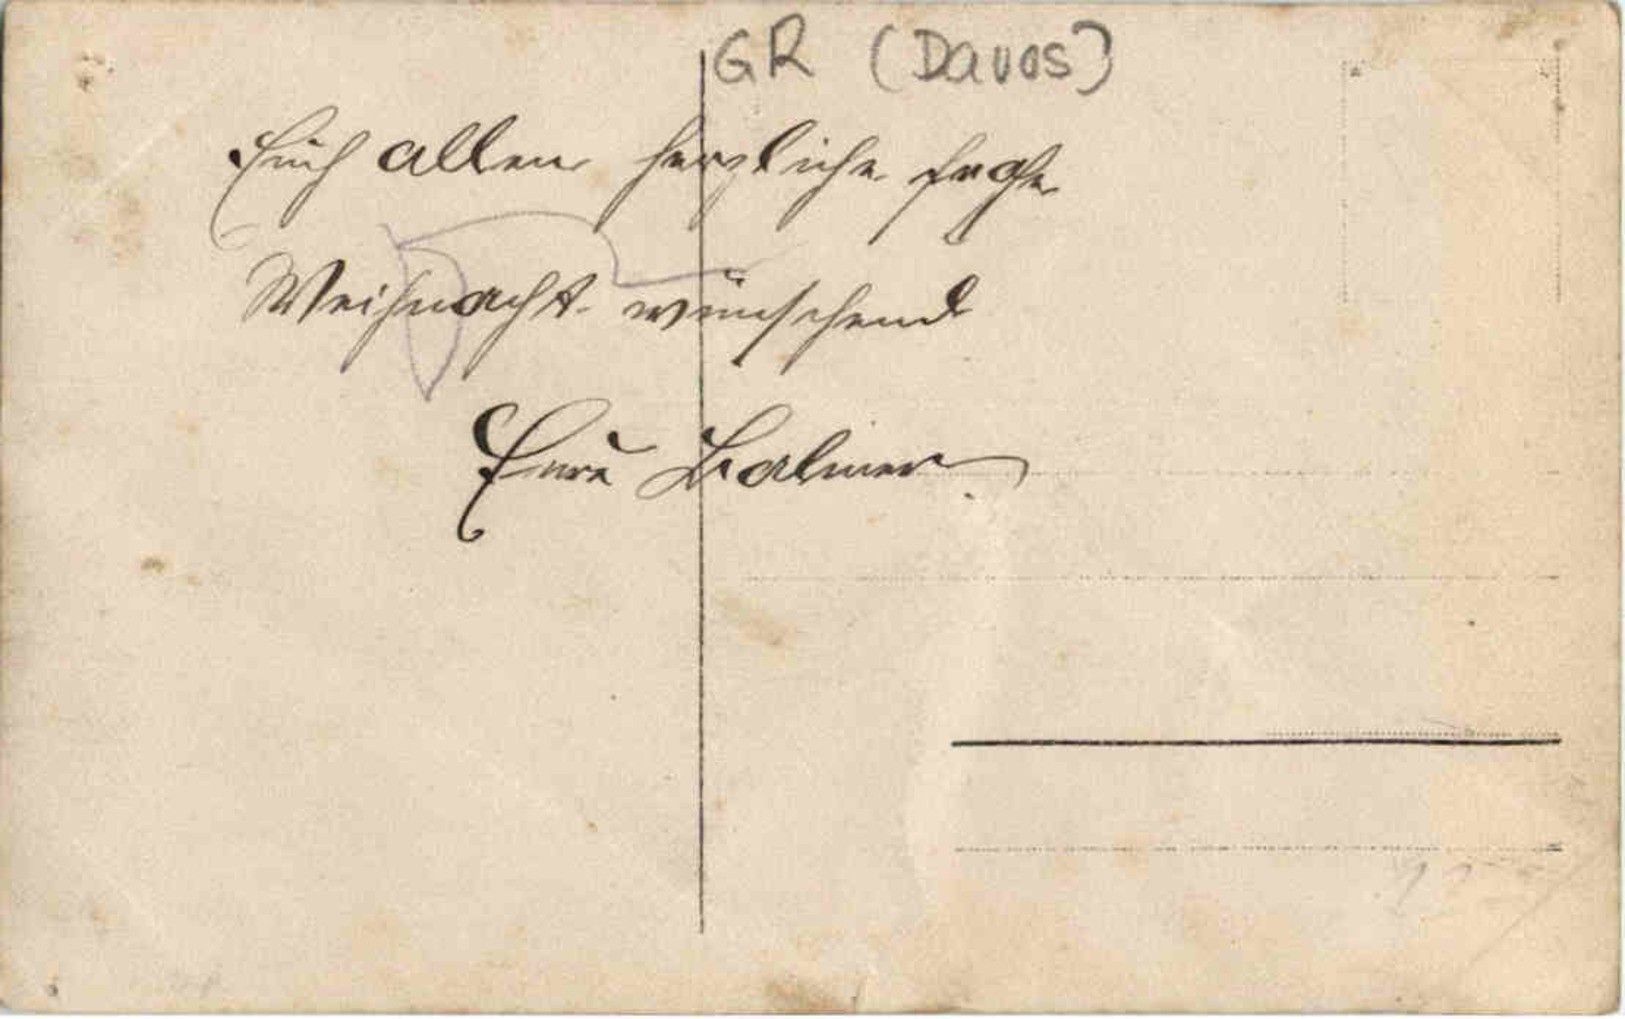 GR (Davos)
Euch allen herzliche frohe
Weihnacht wünschend
Eure Balmer